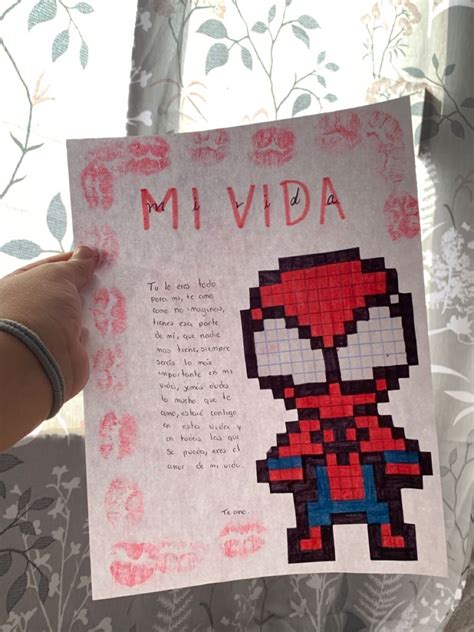 MI VIDA
mi vida
Tu lo eres todo
para mi, te amo
como no imaginas,
tienes esa parte
de mí, que nadie
mas tiene, siempre
serás lo más
importante en mi
vida, jamás olvides
lo mucho que te
amo, estaré contigo
en esta vida y
en todas las que
se pueda, eres el
amor de mi vida.
Te amo.